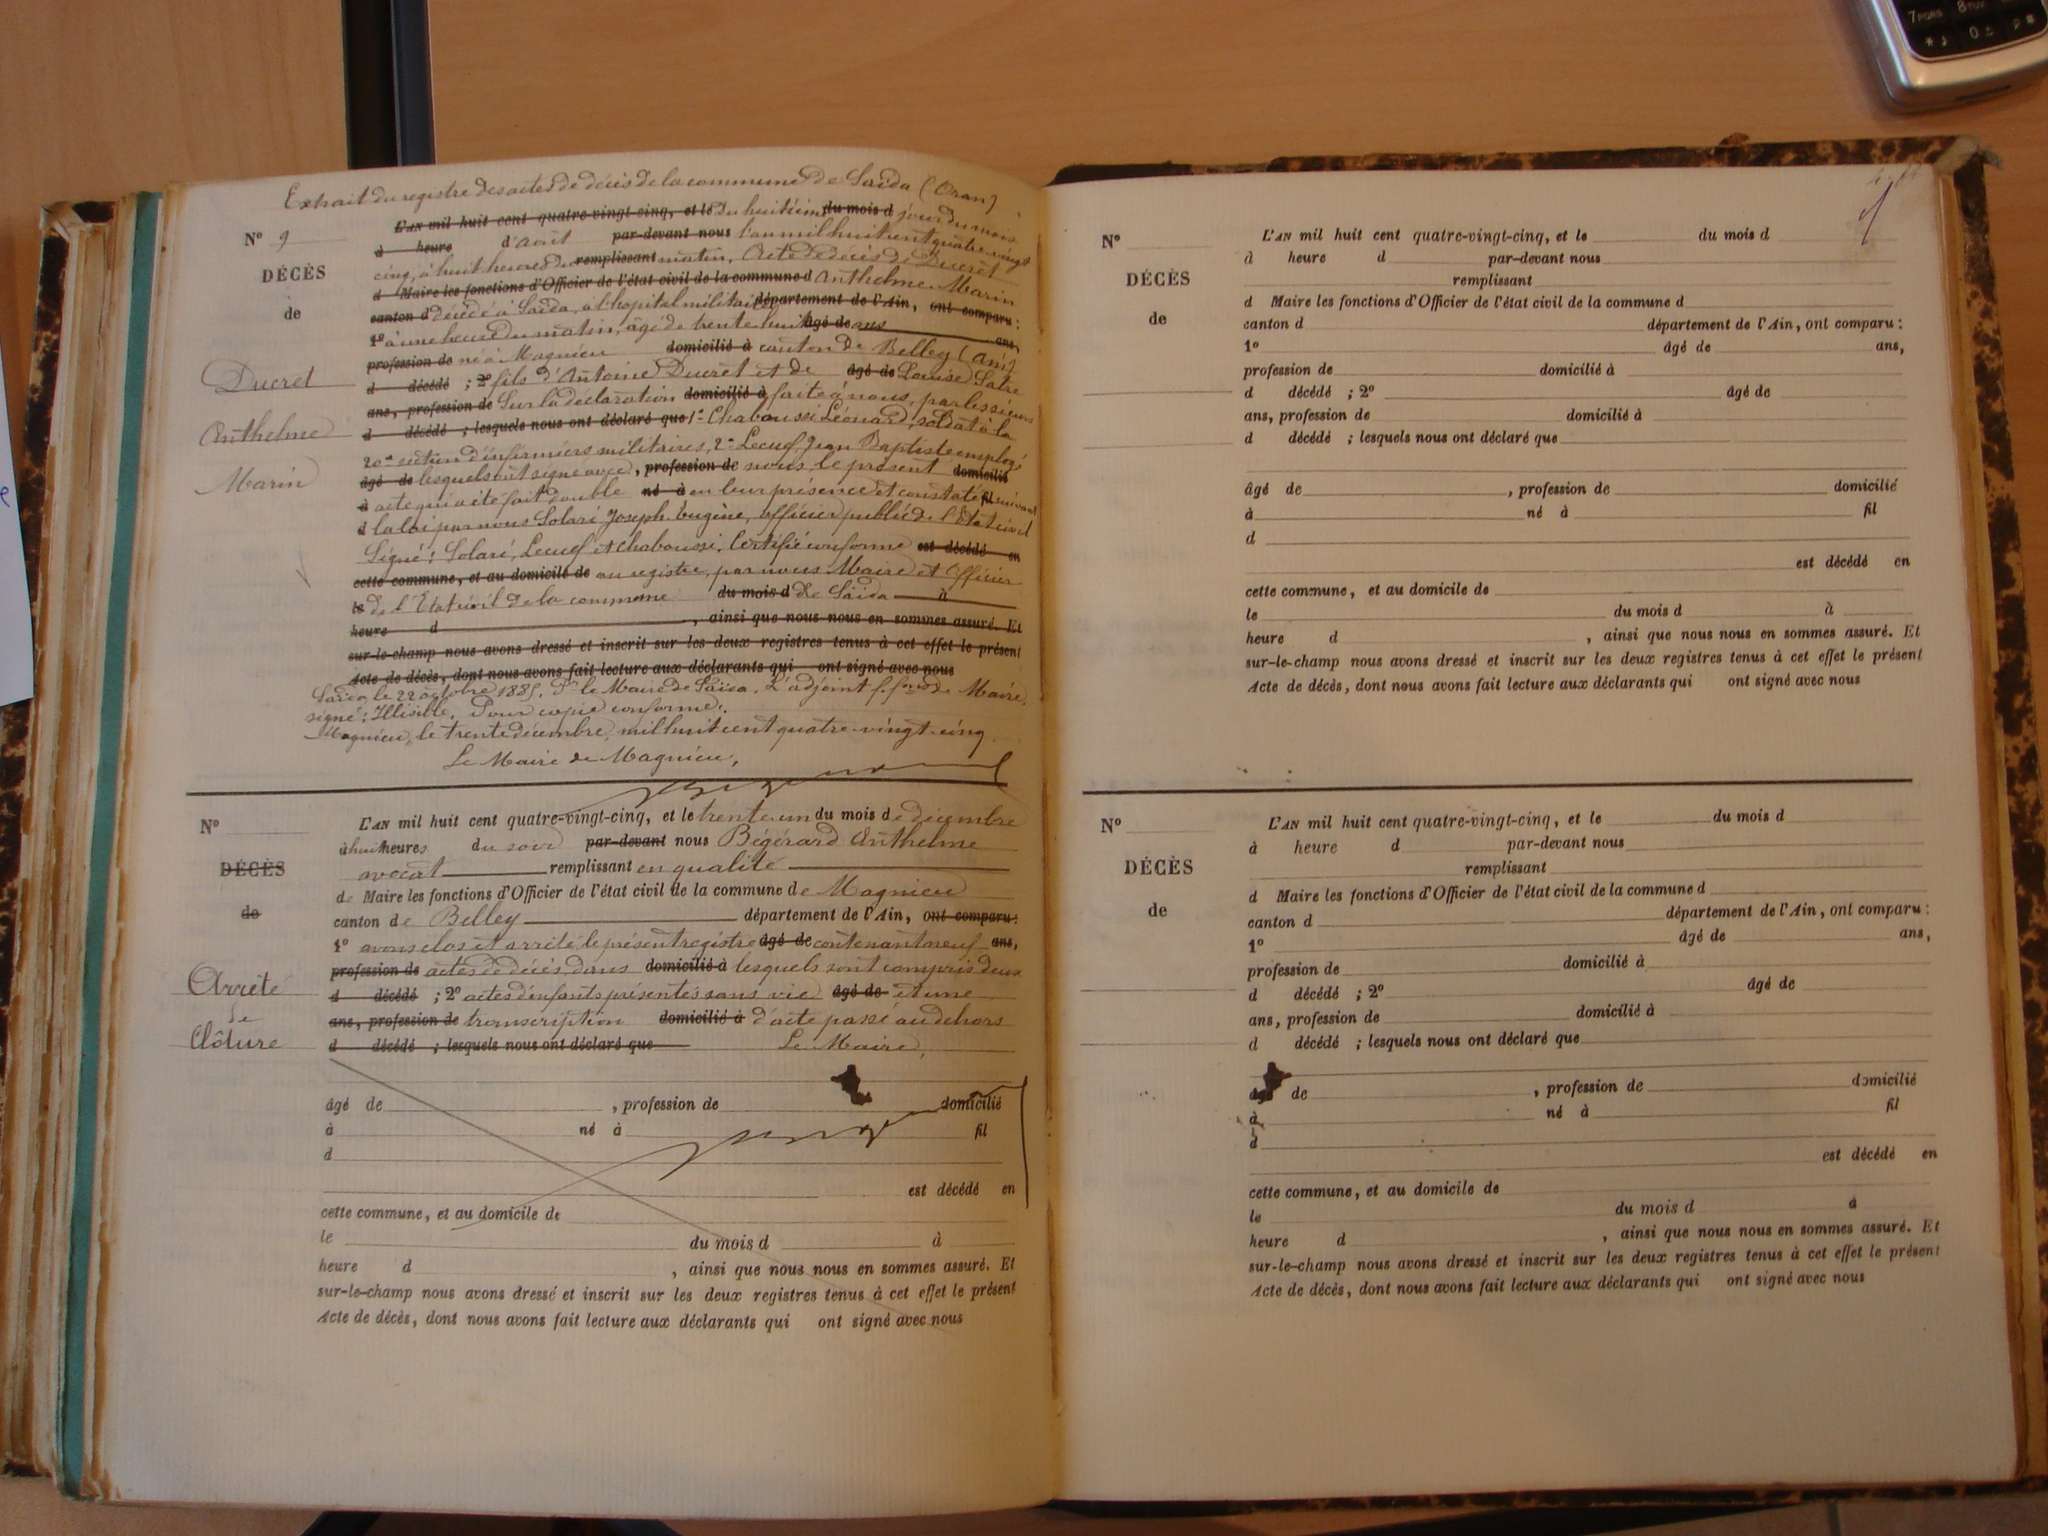 Extrait du registre des actes de décès de la commune de Saïda (Oran)
N° 9
DÉCÈS
de
Ducret
Anthelme
Marin
L'AN mil huit cent quatre-vingt-cinq, et le Du huitième du mois d jour du mois
d heure d'août par-devant nous l'an mil huit cent quatre-vingt
cinq, à huit heures du remplissant matin, Acte de décès de Ducret
d Maire les fonctions d'Officier de l'état civil de la commune d Anthelme Marin
canton d décédé à Saïda, à l'hopital militaire département de l'Ain, ont comparu :
1° à une heure du matin, âgé de trente huit âgé de ans ans,
profession de né à Magnieu domicilié à canton de Belley (Ain)
d décédé ; 2° fils d'Antoine Ducret et de âgé de Louise Satre
ans, profession de Sur la déclaration domicilié à faite à nous, par les sieurs
d décédé ; lesquels nous ont déclaré que 1° Chaboussi Léonard, soldat à la
20e section d'infirmiers militaires, 2° Lecuef Jean Baptiste employé
âgé de lesquels ont signé avec, profession de nous le présent domicilié
à acte qui a été fait double né à en leur présence et constaté fil suivant
d la loi par nous Solari Joseph Eugène, officier public de l'État civil
Signé : Solari, Lecuef et Chaboussi. Certifié conforme est décédé en
cette commune, et au domicile de au registre, par nous Maire et Officier
le de l'État civil de la commune du mois d de Saïda à
heure d , ainsi que nous nous en sommes assuré. Et
sur-le-champ nous avons dressé et inscrit sur les deux registres tenus à cet effet le présent
Acte de décès, dont nous avons fait lecture aux déclarants qui ont signé avec nous
Saïda le 22 octobre 1885. Pr le Maire de Saïda, L'adjoint ff fons de Maire,
signé : Illisible. Pour copie conforme :
Magnieu, le trente décembre, mil huit cent quatre-vingt-cinq
Le Maire de Magnieu,
N°
DÉCÈS
de
Arrêté
de
Clôture
L'AN mil huit cent quatre-vingt-cinq, et le trente un du mois de décembre
à huit heures du soir par-devant nous Bégérard Anthelme
avocat remplissant en qualité
de Maire les fonctions d'Officier de l'état civil de la commune de Magnieu
canton de Belley département de l'Ain, ont comparu :
1° avons clos et arrêté le présent registre âgé de contenant neuf ans,
profession de actes de décès dans domicilié à lesquels sont compris deux
d décédé ; 2° actes d'enfants présentés sans vie âgé de et une
ans, profession de transcription domicilié à d'acte passé au dehors
d décédé ; lesquels nous ont déclaré que Le Maire,
âgé de , profession de domicilié
à né à fil
d
est décédé en
cette commune, et au domicile de
le du mois d à
heure d , ainsi que nous nous en sommes assuré. Et
sur-le-champ nous avons dressé et inscrit sur les deux registres tenus à cet effet le présent
Acte de décès, dont nous avons fait lecture aux déclarants qui ont signé avec nous
N°
DÉCÈS
de
L'AN mil huit cent quatre-vingt-cinq, et le du mois d
à heure d par-devant nous
remplissant
d Maire les fonctions d'Officier de l'état civil de la commune d
canton d département de l'Ain, ont comparu :
1° âgé de ans,
profession de domicilié à
d décédé ; 2° âgé de
ans, profession de domicilié à
d décédé ; lesquels nous ont déclaré que
âgé de , profession de domicilié
à né à fil
d
est décédé en
cette commune, et au domicile de
le du mois d à
heure d , ainsi que nous nous en sommes assuré. Et
sur-le-champ nous avons dressé et inscrit sur les deux registres tenus à cet effet le présent
Acte de décès, dont nous avons fait lecture aux déclarants qui ont signé avec nous
N°
DÉCÈS
de
L'AN mil huit cent quatre-vingt-cinq, et le du mois d
à heure d par-devant nous
remplissant
d Maire les fonctions d'Officier de l'état civil de la commune d
canton d département de l'Ain, ont comparu :
1° âgé de ans,
profession de domicilié à
d décédé ; 2° âgé de
ans, profession de domicilié à
d décédé ; lesquels nous ont déclaré que
âgé de , profession de domicilié
à né à fil
d
est décédé en
cette commune, et au domicile de
le du mois d à
heure d , ainsi que nous nous en sommes assuré. Et
sur-le-champ nous avons dressé et inscrit sur les deux registres tenus à cet effet le présent
Acte de décès, dont nous avons fait lecture aux déclarants qui ont signé avec nous